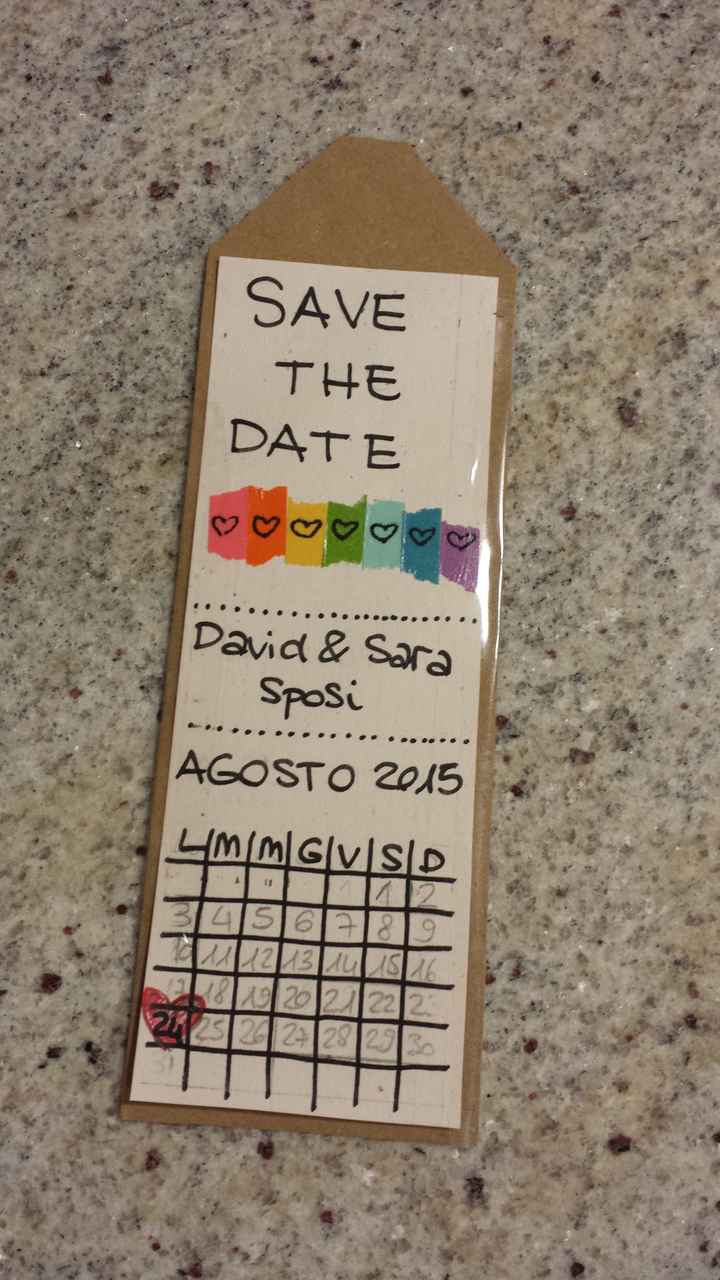 SAVE
THE
DATE
David & Sara
Sposi
AGOSTO 2015
L M M G V S D
1 2
3 4 5 6 7 8 9
10 11 12 13 14 15 16
17 18 19 20 21 22
24 25 26 27 28 29 30
31